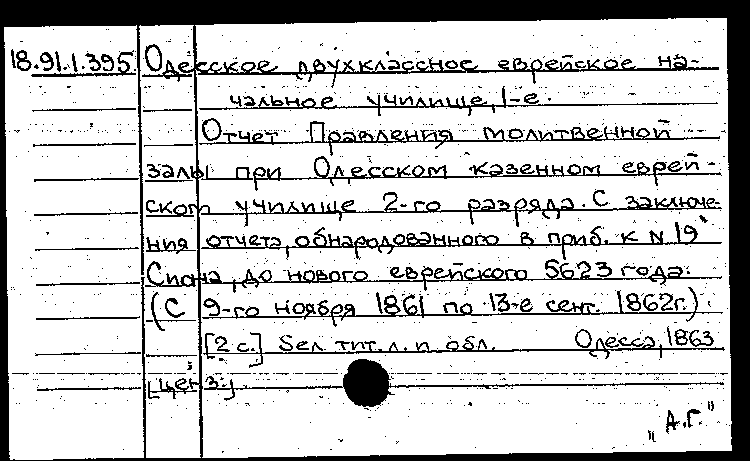 18.91.1.395 Одесское двухклассное еврейское на-
чальное училище, 1-е.
Отчет Правления молитвенной
залы при Одесском казенном еврей-
ском училище 2-го разряда. С заключе-
ния отчета, обнародованного в приб. к N 19
Сиона, до нового еврейского 5623 года.
(С 9-го ноября 1861 по 13-е сент. 1862г.).
[2 с.] Без тит. л. и обл. Одесса, 1863
[ценз.]
"А.Г."